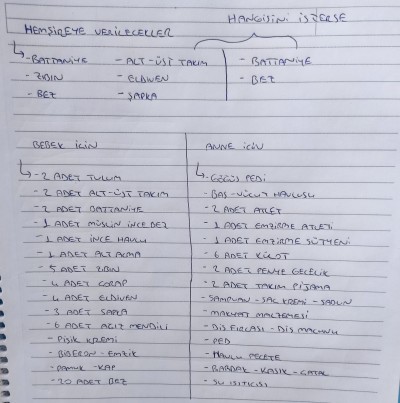 HANGİSİNİ İSTERSE
HEMŞİREYE VERİLECELLER
- BATTANİYE - ALT-ÜST TAKIM - BATTANİYE
- ZIBIN - ELDİVEN - BEZ
- BEZ - ŞAPKA
BEBEK İÇİN
- 2 ADET TULUM
- 2 ADET ALT-ÜST TAKIM
- 2 ADET BATTANİYE
- 1 ADET MÜSLİN İNCE BEZ
- 1 ADET İNCE HAVLU
- 1 ADET ALT AÇMA
- 5 ADET ZIBIN
- 4 ADET ÇORAP
- 4 ADET ELDİVEN
- 3 ADET ŞAPKA
- 6 ADET AĞIZ MENDİLİ
- PİŞİK KREMİ
- BİBERON - EMZİK
- PAMUK - KAP
- 20 ADET BEZ
ANNE İÇİN
- GÖĞÜS PEDİ
- BAŞ-VÜCUT HAVLUSU
- 2 ADET ATLET
- 1 ADET EMZİRME ATLETİ
- 1 ADET EMZİRME SÜTYENİ
- 6 ADET KÜLOT
- 2 ADET PENYE GECELİK
- 2 ADET TAKIM PİJAMA
- ŞAMPUAN - SAÇ KREMİ - SABUN
- MAKYAJ MALZEMESİ
- DİŞ FIRÇASI - DİŞ MACUNU
- PED
- HAVLU PEÇETE
- BARDAK - KAŞIK - ÇATAL
- SU ISITICISI